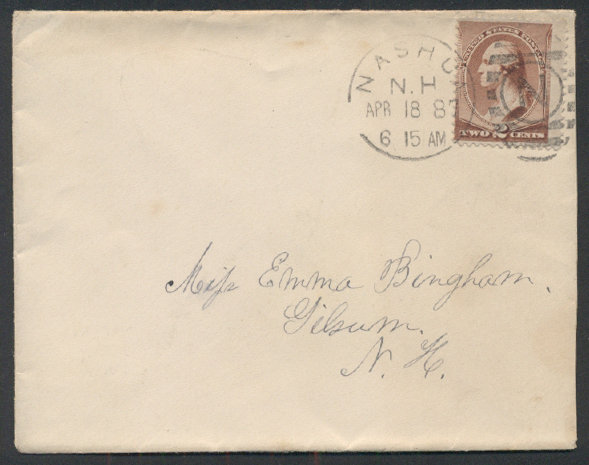 NASHU
N.H
APR 18 8
6 15 AM
UNITED STATES POSTAGE
TWO 2 CENTS
Miss Emma Bingham.
Gilsum.
N. H.